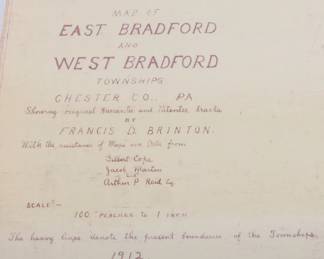 MAP OF
EAST BRADFORD
AND
WEST BRADFORD
TOWNSHIPS
CHESTER CO., PA
Showing original Warrantee and Patentee tracts
BY
FRANCIS D. BRINTON.
With the assistance of Maps and Data from
Gilbert Cope
Jacob Martin
Arthur P. Reid Esq
SCALE:-
100 PERCHES TO 1 INCH
The heavy lines denote the present boundaries of the Townships
1912